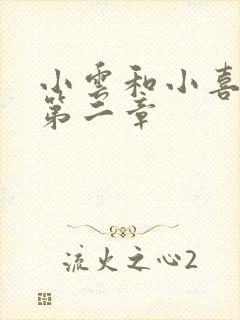 小雲和小喜
第二章
流火之心2